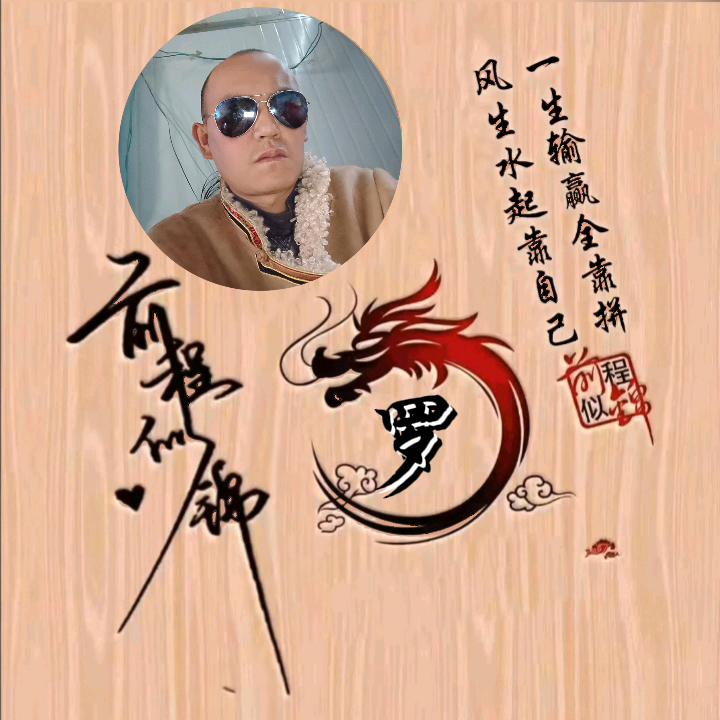 一生输赢全靠拼
风生水起靠自己
前程似锦
罗
前程似锦